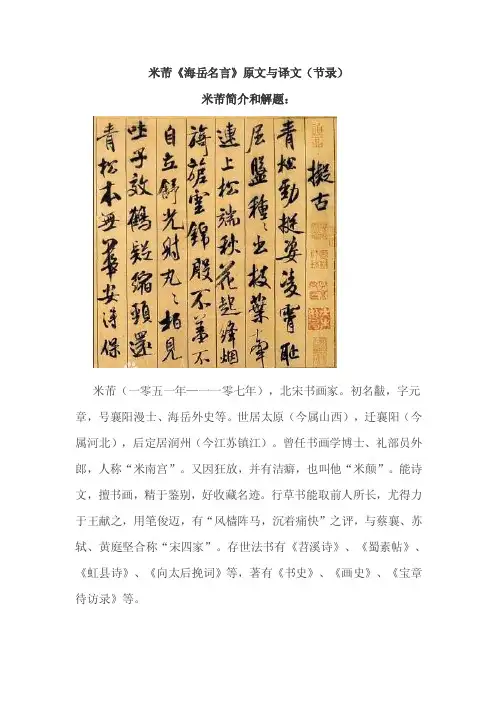 米芾《海岳名言》原文与译文（节录）
米芾简介和解题：
擬古
青松勁挺姿凌霄恥
屈盤種〻出枝葉牽
連上松端秋花起絳烟
旖旎雲錦殷不羞不
自立舒光射丸〻柏見
吐子效鶴疑縮頸還
青松本無華安得保
米芾（一零五一年—一一零七年），北宋书画家。初名黻，字元
章，号襄阳漫士、海岳外史等。世居太原（今属山西），迁襄阳（今
属河北），后定居润州（今江苏镇江）。曾任书画学博士、礼部员外
郎，人称“米南宫”。又因狂放，并有洁癖，也叫他“米颠”。能诗
文，擅书画，精于鉴别，好收藏名迹。行草书能取前人所长，尤得力
于王献之，用笔俊迈，有“风樯阵马，沉着痛快”之评，与蔡襄、苏
轼、黄庭坚合称“宋四家”。存世法书有《苕溪诗》、《蜀素帖》、
《虹县诗》、《向太后挽词》等，著有《书史》、《画史》、《宝章
待访录》等。